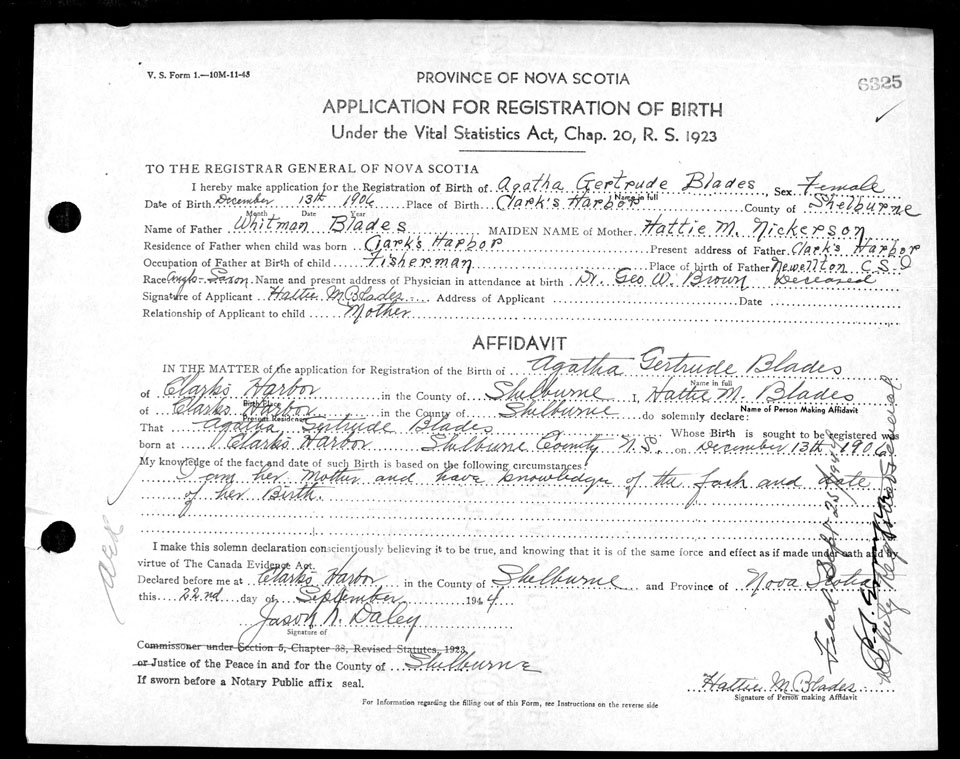 V. S. Form 1.—10M-11-43
6325
PROVINCE OF NOVA SCOTIA
APPLICATION FOR REGISTRATION OF BIRTH
Under the Vital Statistics Act, Chap. 20, R. S. 1923
TO THE REGISTRAR GENERAL OF NOVA SCOTIA
I hereby make application for the Registration of Birth of Agatha Gertrude Blades, Sex Female
Name in full
Date of Birth December 13th 1906 Place of Birth Clark's Harbor County of Shelburne
Month Date Year
Name of Father Whitman Blades MAIDEN NAME of Mother Hattie M. Nickerson
Residence of Father when child was born Clark's Harbor Present address of Father Clark's Harbor
Occupation of Father at Birth of child Fisherman Place of birth of Father Newellton C.S.I
Race Anglo-Saxon Name and present address of Physician in attendance at birth Dr. Geo W. Brown Deceased
Signature of Applicant Hattie M Blades Address of Applicant Date
Relationship of Applicant to child Mother
AFFIDAVIT
IN THE MATTER of the application for Registration of the Birth of Agatha Gertrude Blades
Name in full
of Clark's Harbor in the County of Shelburne I, Hattie M. Blades
Birth Place Name of Person Making Affidavit
of Clark's Harbor in the County of Shelburne do solemnly declare:
Present Residence
That Agatha Gertrude Blades Whose Birth is sought to be registered was
born at Clark's Harbor Shelburne County N.S. on December 13th 1906
My knowledge of the fact and date of such Birth is based on the following circumstances:
I am her Mother and have knowledge of the fact and date
of her Birth.
I make this solemn declaration conscientiously believing it to be true, and knowing that it is of the same force and effect as if made under oath and by
virtue of The Canada Evidence Act.
Declared before me at Clark's Harbor in the County of Shelburne and Province of Nova Scotia
this 22nd day of September 1944
Jason N. Daley
Signature of
Commissioner under Section 5, Chapter 38, Revised Statutes, 1923
or Justice of the Peace in and for the County of Shelburne
If sworn before a Notary Public affix seal.
Hattie M Blades
Signature of Person making Affidavit
For Information regarding the filling out of this Form, see Instructions on the reverse side
Filed Sept 25
Deputy Registrar General